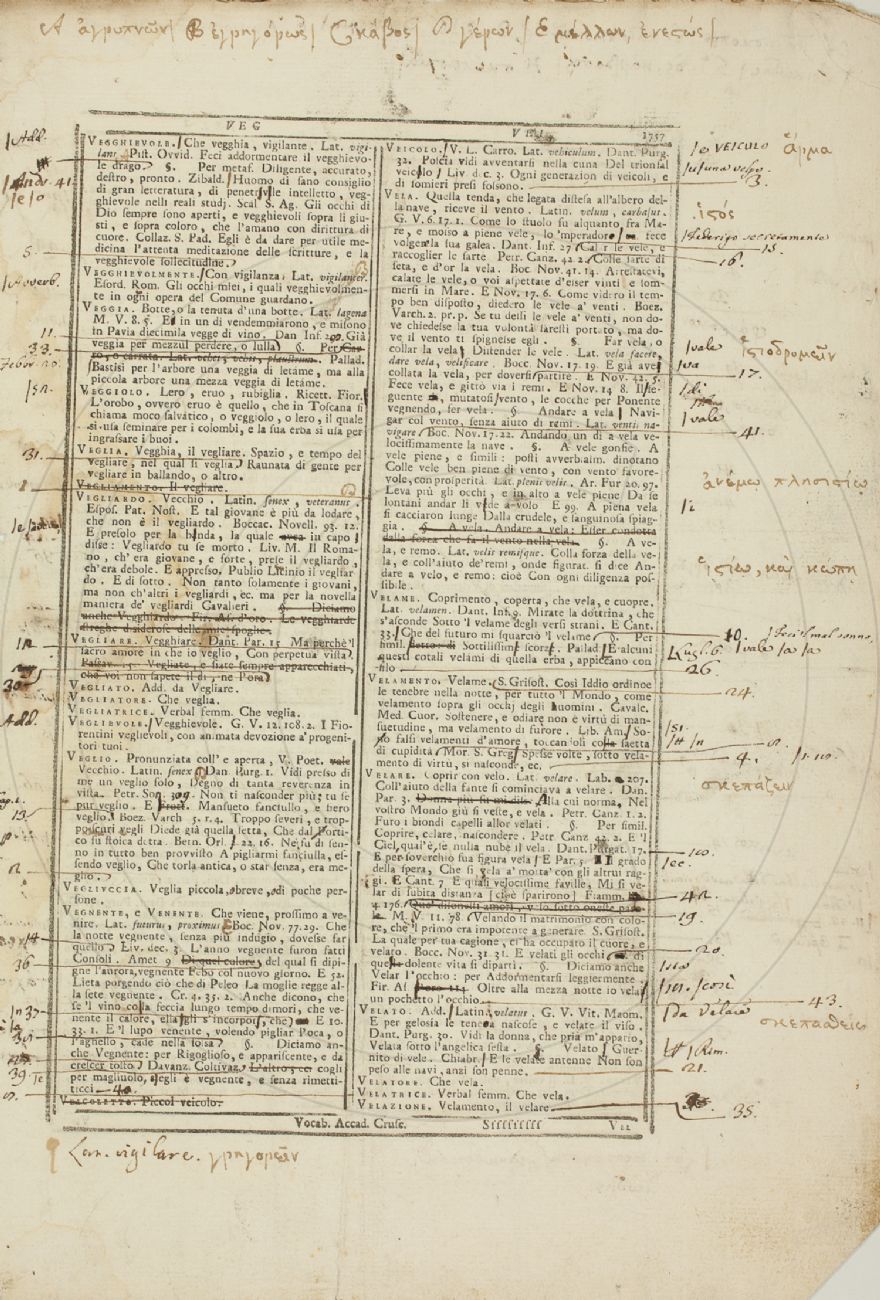 A ἀγρυπνῶν| B ἐγρηγόρως| C κάβος| D γέρων.| E μέλλων, ἐνεστώς|.
VEG
1757
VEGGHIEVOLE. Che vegghia, vigilante. Lat. vigi-
lans. Pist. Ovvid. Feci addormentare il vegghievo-
le drago. §. Per metaf. Diligente, accurato,
destro, pronto. Zibald. Huomo di sano consiglio
di gran letteratura, di intelletto, veg-
ghievole nelli reali studj. Scal. S. Ag. Gli occhi di
Dio sempre sono aperti, e vegghievoli sopra li giu-
sti, e sopra coloro, che l'amano con dirittura di
cuore. Collaz. S. Pad. Egli è da dare per utile me-
dicina l'attenta meditazione delle scritture, e la
vegghievole sollecitudine.
VEGGHIEVOLMENTE. Con vigilanza. Lat. vigilanter.
Esord. Rom. Gli occhi miei, i quali vegghievolmen-
te in ogni opera del Comune guardano.
VEGGIA. Botte, o la tenuta d'una botte. Lat. lagena
M. V. 8. 5. E in un dì vendemmiarono, e misono
in Pavia diecimila vegge di vino. Dan. Inf. Già
veggia per mezzul perdere, o lulla §. Per Car-
ro, o carrata. Lat. vehes, vehis, plaustrum. Pallad.
Bastisi per l'arbore una veggia di letame, ma alla
piccola arbore una mezza veggia di letame.
VEGGIOLO. Lero, eruo, rubiglia. Ricett. Fior.
L'orobo, ovvero eruo è quello, che in Toscana si
chiama moco salvatico, o veggiolo, o lero, il quale
si usa seminare per i colombi, e la sua erba si usa per
ingrassare i buoi.
VEGLIA. Vegghia, il vegliare. Spazio, e tempo del
vegliare, nel qual si veglia. Raunata di gente per
vegliare in ballando, o altro.
VEGLIAMENTO. Il vegliare.
VEGLIARDO. Vecchio. Latin. senex, veteranus.
Espos. Pat. Nost. E tal giovane è più da lodare,
che non è il vegliardo. Boccac. Novell. 93. 12.
E presolo per la bionda, la quale in capo
disse: Vegliardo tu se morto. Liv. M. Il Roma-
no, ch'era giovane, e forte, prese il vegliardo,
ch'era debole. E appresso. Publio Licinio il vegliar
do. E di sotto. Non tanto solamente i giovani,
ma non ch'altri i vegliardi, ec. ma per la novella
maniera de' vegliardi Cavalieri. §. Diciamo
anche Vegghiardo. Fir. As. d'oro. Le vegghiarde
streghe d'aiderose delle mie spoglie.
VEGLIARE. Vegghiare. Dant. Par. 15. Ma perchè 'l
sacro amore in che io veglio, Con perpetua vista.
Passav. 15. Vegliate, e siate sempre apparecchiati,
che voi non sapete il dì, ne l'ora.
VEGLIATO. Add. da Vegliare.
VEGLIATORE. Che veglia.
VEGLIATRICE. Verbal femm. Che veglia.
VEGLIEVOLE. Vegghievole. G. V. 12. 108. 2. I Fio-
rentini veglievoli, con animata devozione a' progeni-
tori tuoi.
VEGLIO. Pronunziata coll' e aperta, V. Poet. vale
Vecchio. Latin. senex. Dan. Purg. 1. Vidi presso di
me un veglio solo, Degno di tanta reverenza in
vista. Petr. Son. Non ti nasconder più: tu se
pur veglio. E Mansueto fanciullo, e fiero
veglio. Boez. Varch. 5. r. 4. Troppo severi, e trop-
po oscuri vegli Diede già quella setta, Che dal Porti-
co fu stoica detta. Bern. Orl. 1. 22. 16. Ne fu di sen-
no in tutto ben provvisto A pigliarmi fanciulla, es-
sendo veglio, Che torla antica, o star senza, era me-
glio.
VEGLIUCCIA. Veglia piccola, o breve, o di poche per-
sone.
VEGNENTE, e VENENTE. Che viene, prossimo a ve-
nire. Lat. futurus, proximus. Boc. Nov. 77. 29. Che
la notte vegnente, senza più indugio, dovesse far
quello. Liv. dec. 3. L'anno vegnente furon fatti
Consoli. Amet. 9. Di quel colore, del qual si dipi-
gne l'aurora, vegnente Febo col nuovo giorno. E 52.
Lieta porgendo ciò che di Peleo La moglie regge al-
la sete vegnente. Cr. 4. 35. 2. Anche dicono, che
se 'l vino colla feccia lungo tempo dimori, che ve-
nente il calore, ella gli s'incorpori, che E 10.
33. 1. E 'l lupo venente, volendo pigliar l'oca, o
l'agnello, cade nella fossa. §. Diciamo an-
che Vegnente: per Rigoglioso, e appariscente, e da
crescer tosto. Davanz. Coltivaz. cogli
per magliuolo, egli è vegnente, e senza rimetti-
ticci.
VEICOLETTO. Piccol veicolo.
VEICOLO. V. L. Carro. Lat. vehiculum. Dant. Purg.
32. Poscia vidi avventarsi nella cuna Del trionfal
veicolo. Liv. d. c. 3. Ogni generazion di veicoli, e
di somieri presi fossono.
VELA. Quella tenda, che legata distesa all'albero del-
la nave, riceve il vento. Latin. velum, carbasus.
G. V. 6. 17. 1. Come lo stuolo fu alquanto, fra Ma-
re, e mosso a piene vele, lo 'mperadore fece
volger la sua galea. Dant. Inf. 27. Calar le vele, e
raccoglier le sarte. Petr. Canz. 42. 2. Colle sarte di
seta, e d'or la vela. Boc. Nov. 41. 14. Arrestatevi,
calate le vele, o voi aspettate d'esser vinti e som-
mersi in Mare. E Nov. 17. 6. Come videro il tem-
po ben disposto, diedero le vele a' venti. Boez.
Varch. 2. pr. p. Se tu dessi le vele a' venti, non do-
ve chiedesse la tua volontà saresti portato, ma do-
ve il vento ti spignesse egli. §. Far vela, o
collar la vela: Distender le vele. Lat. vela facere,
dare vela, velificare. Bocc. Nov. 17. 19. E già ave
collata la vela, per doversi partire. E Nov. 42. 5.
Fece vela, e gittò via i remi. E Nov. 14. 8. Il se-
guente dì, mutatosi vento, le cocche per Ponente
vegnendo, fer vela. §. Andare a vela: Navi-
gar col vento, senza aiuto di remi. Lat. ventis na-
vigare. Boc. Nov. 17. 22. Andando un dì a vela ve-
locissimamente la nave. §. A vele gonfie. A
vele piene, e simili: posti avverbialm. dinotano
Colle vele ben piene di vento, con vento favore-
vole, con prosperità. Lat. plenis velis. Ar. Fur. 20. 97.
Leva più gli occhi, e in alto a vele piene Da se
lontani andar li vide a volo. E 99. A piena vela
si cacciaron lunge Dalla crudele, e sanguinosa spiag-
gia. §. A vela. Andare a vela: Esser condotta
dalla forza che fa il vento nella vela. §. A ve-
la, e remo. Lat. velis remisque. Colla forza della ve-
la, e coll'aiuto de' remi, onde figurat. si dice An-
dare a velo, e remo: cioè Con ogni diligenza pos-
sibile.
VELAME. Coprimento, coperta, che vela, e cuopre.
Lat. velamen. Dant. Inf. 9. Mirate la dottrina, che
s'asconde Sotto 'l velame degli versi strani. E Cant.
33. Che del futuro mi squarciò 'l velame. §. Per
simil. Sottilissim scorza. Pallad. E alcuni
questi cotali velami di quella erba, appiccano con
filo.
VELAMENTO. Velame. S. Grisost. Così Iddio ordinoe
le tenebre nella notte, per tutto 'l Mondo, come
velamento sopra gli occhj degli huomini. Cavalc.
Med. Cuor. Sostenere, e odiare non è virtù di man-
suetudine, ma velamento di furore. Lib. Am. So-
no falsi velamenti d'amore, toccan i oli colla saetta
di cupidità. Mor. S. Greg. Spesse volte, sotto vela-
mento di virtù, si nasconde, ec.
VELARE. Coprir con velo. Lat. velare. Lab. 207.
Coll'aiuto della fante si cominciava a velare. Dan.
Par. 3. Alla cui norma, Nel
vostro Mondo giù si veste, e vela. Petr. Canz. 1. 2.
Furo i biondi capelli allor velati. §. Per simil.
Coprire, celare, nascondere. Petr. Canz. 42. 2. Se 'l
Ciel, qual' è, se nulla nube il vela. Dant. Purgat. 17.
E per soverchio sua figura vela. E Par. 5. Il grado
della spera, Che si vela a' mortai con gli altrui rag-
gi. E Cant. 7. E quasi velocissime faville, Mi si ve-
lar di subita distanza (cioè sparirono) Fiamm.
4. 176. Que' disonesti amori, v' io sotto oneste paro-
le. M. V. 11. 78. Velando il matrimonio con colo-
re, che 'l primo era impotente a generare. S. Grisost.
La quale per tua cagione, ci ha occupato il cuore, e
velato. Bocc. Nov. 31. 31. E velati gli occhi di
questa dolente vita si diparti. §. Diciamo anche
Velar l'occhio: per Addormentarsi leggiermente.
Fir. As. Oltre alla mezza notte io velai
un pochetto l'occhio.
VELATO. Add. Latin. velatus. G. V. Vit. Maom.
E per gelosia le tenea nascose, e velate il viso.
Dant. Purg. 30. Vidi la donna, che pria m'appario,
Velata sotto l'angelica festa. §. Velato. Guer-
nito di vele. Chiabr. E le velate antenne Non son
peso alle navi, anzi son penne.
VELATORE. Che vela.
VELATRICE. Verbal femm. Che vela.
VELAZIONE. Velamento, il velare.
Vocab. Accad. Crusc. Sfffffffff VEL
|Add.
41
5.
|Avverb.
11.
33.
31.
|o VEICOLO
ἅρμα
3.
ἱστός
|Federigo secretamento
15.
16.
|vale
ἱστιοδρομεῖν
|va
17.
|di
|vale
41.
ἀνέμῳ πλησιστίῳ
ἱστίῳ, καὶ κώπῃ
10.
26.
24.
4.
σκεπάζειν
10.
|ec.
42.
19.
20.
|così
43.
Da Velare
σκεπασθείς
| Rim.
21.
35.
14
36
39.
Lat. vigilare. γρηγορεῖν